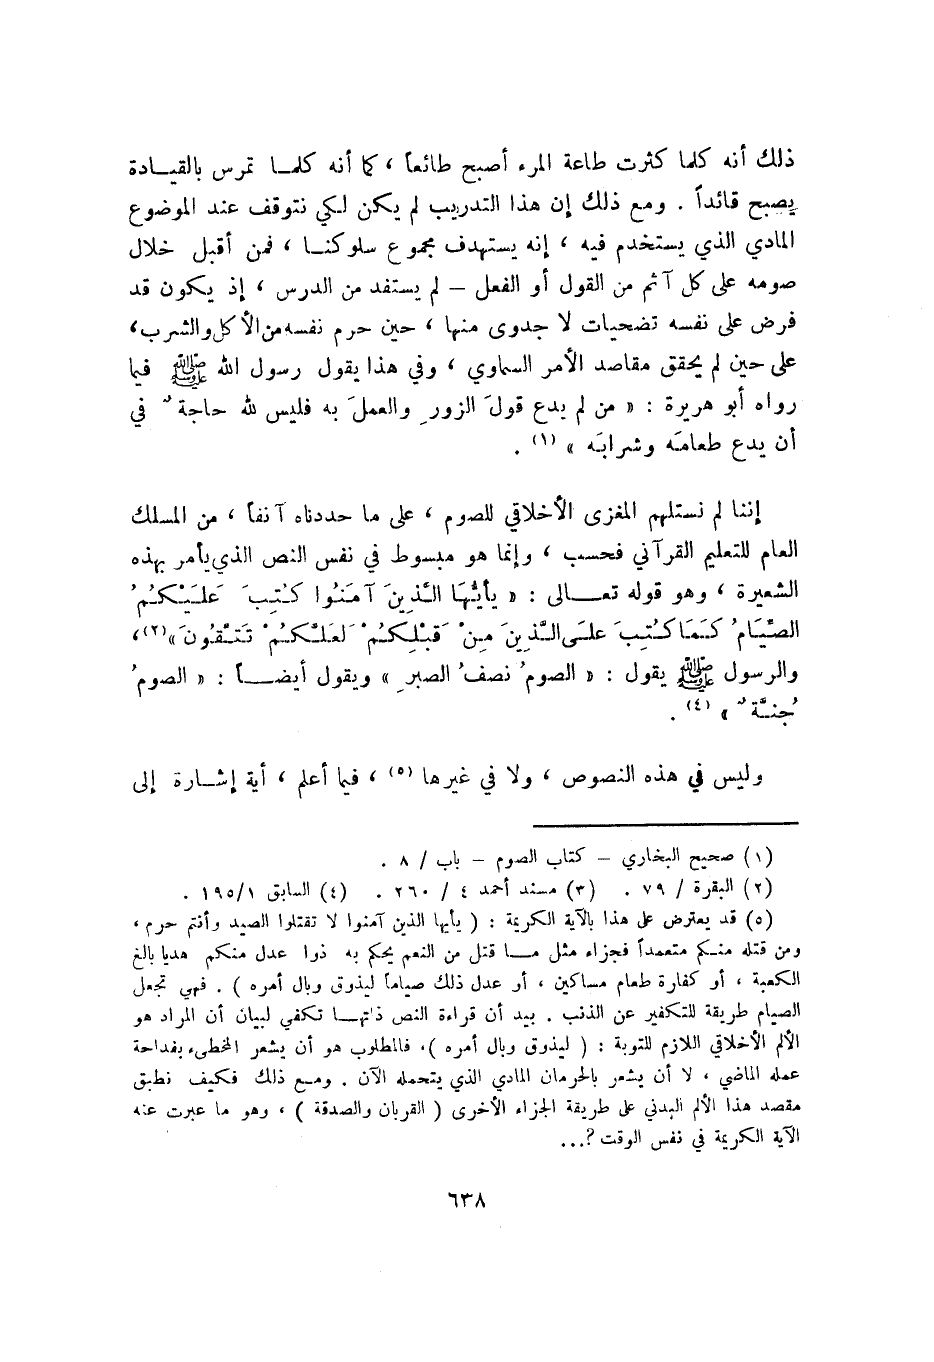 ذلك أنه كلما كثرت طاعة المرء أصبح طائعاً ، كما أنه كلمـا تمرس بالقيـادة
يصبح قائداً . ومع ذلك إن هذا التدريب لم يكن لكي نتوقف عند الموضوع
المادي الذي يستخدم فيه ، إنه يستهدف مجموع سلوكنـا ، فمن أقبل خلال
صومه على كل آثم من القول أو الفعل – لم يستفد من الدرس ، إذ يكون قد
فرض على نفسه تضحيات لا جدوى منها ، حين حرم نفسه من الأكل والشرب،
على حين لم يحقق مقاصد الأمر السماوي ، وفي هذا يقول رسول الله ﷺ فيما
رواه أبو هريرة : « من لم يدع قولَ الزورِ والعملَ به فليس لله حاجةٌ في
أن يدع طعامَه وشرابَه » (١) .
إننا لم نستلهم المغزى الأخلاقي للصوم ، على ما حددناه آنفاً ، من المسلك
العام للتعليم القرآني فحسب ، وإنما هو مبسوط في نفس النص الذي يأمر بهذه
الشعيرة ، وهو قوله تعـالى : « يأيُّهَا الَّذِينَ آمَنُوا كُتِبَ عَلَيْكُمُ
الصِّيَامُ كَمَا كُتِبَ عَلَى الَّذِينَ مِنْ قَبْلِكُمْ لَعَلَّكُمْ تَتَّقُونَ»(٢)،
والرسول ﷺ يقول : « الصومُ نصفُ الصبرِ » ويقول أيضـاً : « الصومُ
جُنَّةٌ » (٤) .
وليس في هذه النصوص ، ولا في غيرها (٥) ، فيما أعلم ، أية إشـارة إلى
(١) صحيح البخاري – كتاب الصوم – باب / ٨ .
(٢) البقرة / ٧٩ . (٣) مسند أحمد ٤ / ٢٦٠ . (٤) السابق ١٩٥/١ .
(٥) قد يعترض على هذا بالآية الكريمة : ( يأيها الذين آمنوا لا تقتلوا الصيد وأنتم حرم ،
ومن قتله منـكم متعمداً فجزاء مثل مـا قتل من النعم يحكم به ذوا عدل منكم هديا بالغ
الكعبة ، أو كفارة طعام مساكين ، أو عدل ذلك صياماً ليذوق وبال أمره ) . فهي تجعل
الصيام طريقة للتكفير عن الذنب . بيد أن قراءة النص ذاتهـا تكفي لبيان أن المراد هو
الألم الأخلاقي اللازم للتوبة : ( ليذوق وبال أمره )، فالمطلوب هو أن يشعر المخطىء بفداحة
عمله الماضي ، لا أن يشعر بالحرمان المادي الذي يتحمله الآن . ومـع ذلك فكيف نطبق
مقصد هذا الألم البدني على طريقة الجزاء الأخرى ( القربان والصدقة ) ، وهو ما عبرت عنه
الآية الكريمة في نفس الوقت ؟...
٦٣٨